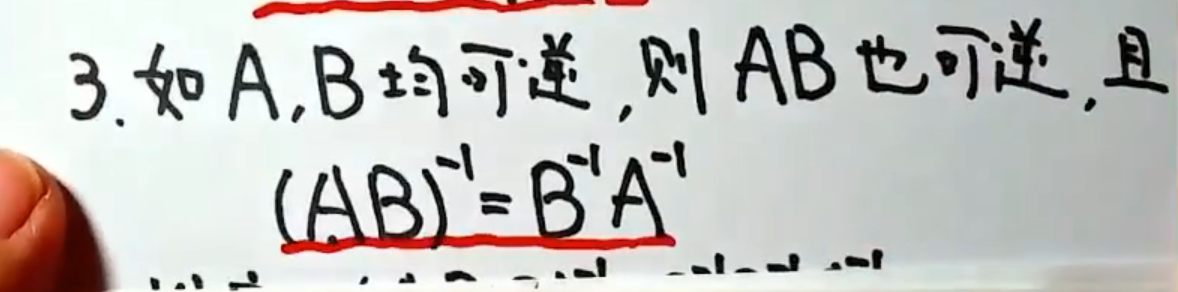 3. 如 A, B 均可逆, 则 AB 也可逆, 且
(AB)⁻¹ = B⁻¹A⁻¹